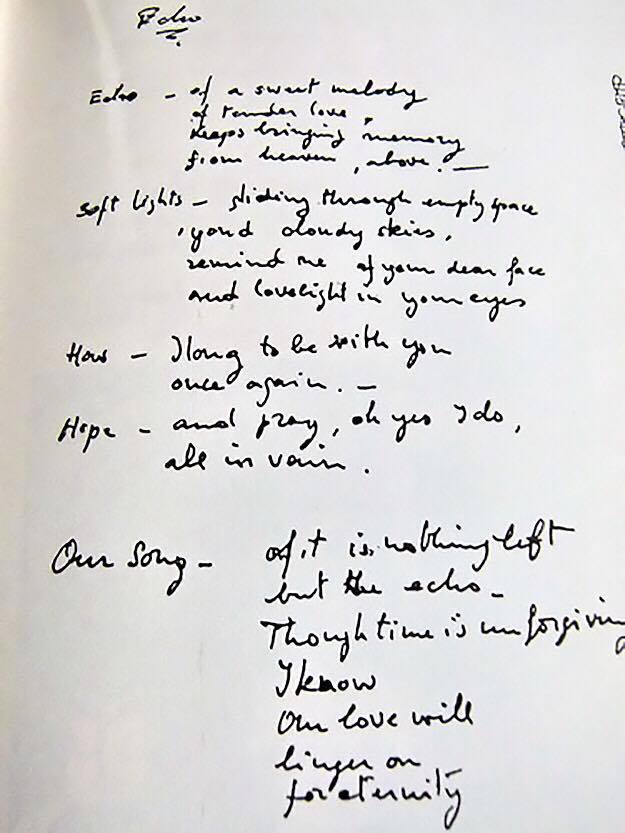 Echo
Echo - of a sweet melody
of tender love,
keeps bringing memory
from heaven, above. —
Soft lights - gliding through empty space
'yond cloudy skies,
remind me of your dear face
and lovelight in your eyes
How - I long to be with you
once again. —
Hope - and pray, oh yes I do,
all in vain.
Our Song - of it is nothing left
but the echo -
Though time is unforgiving
I know
Our love will
linger on
for eternity